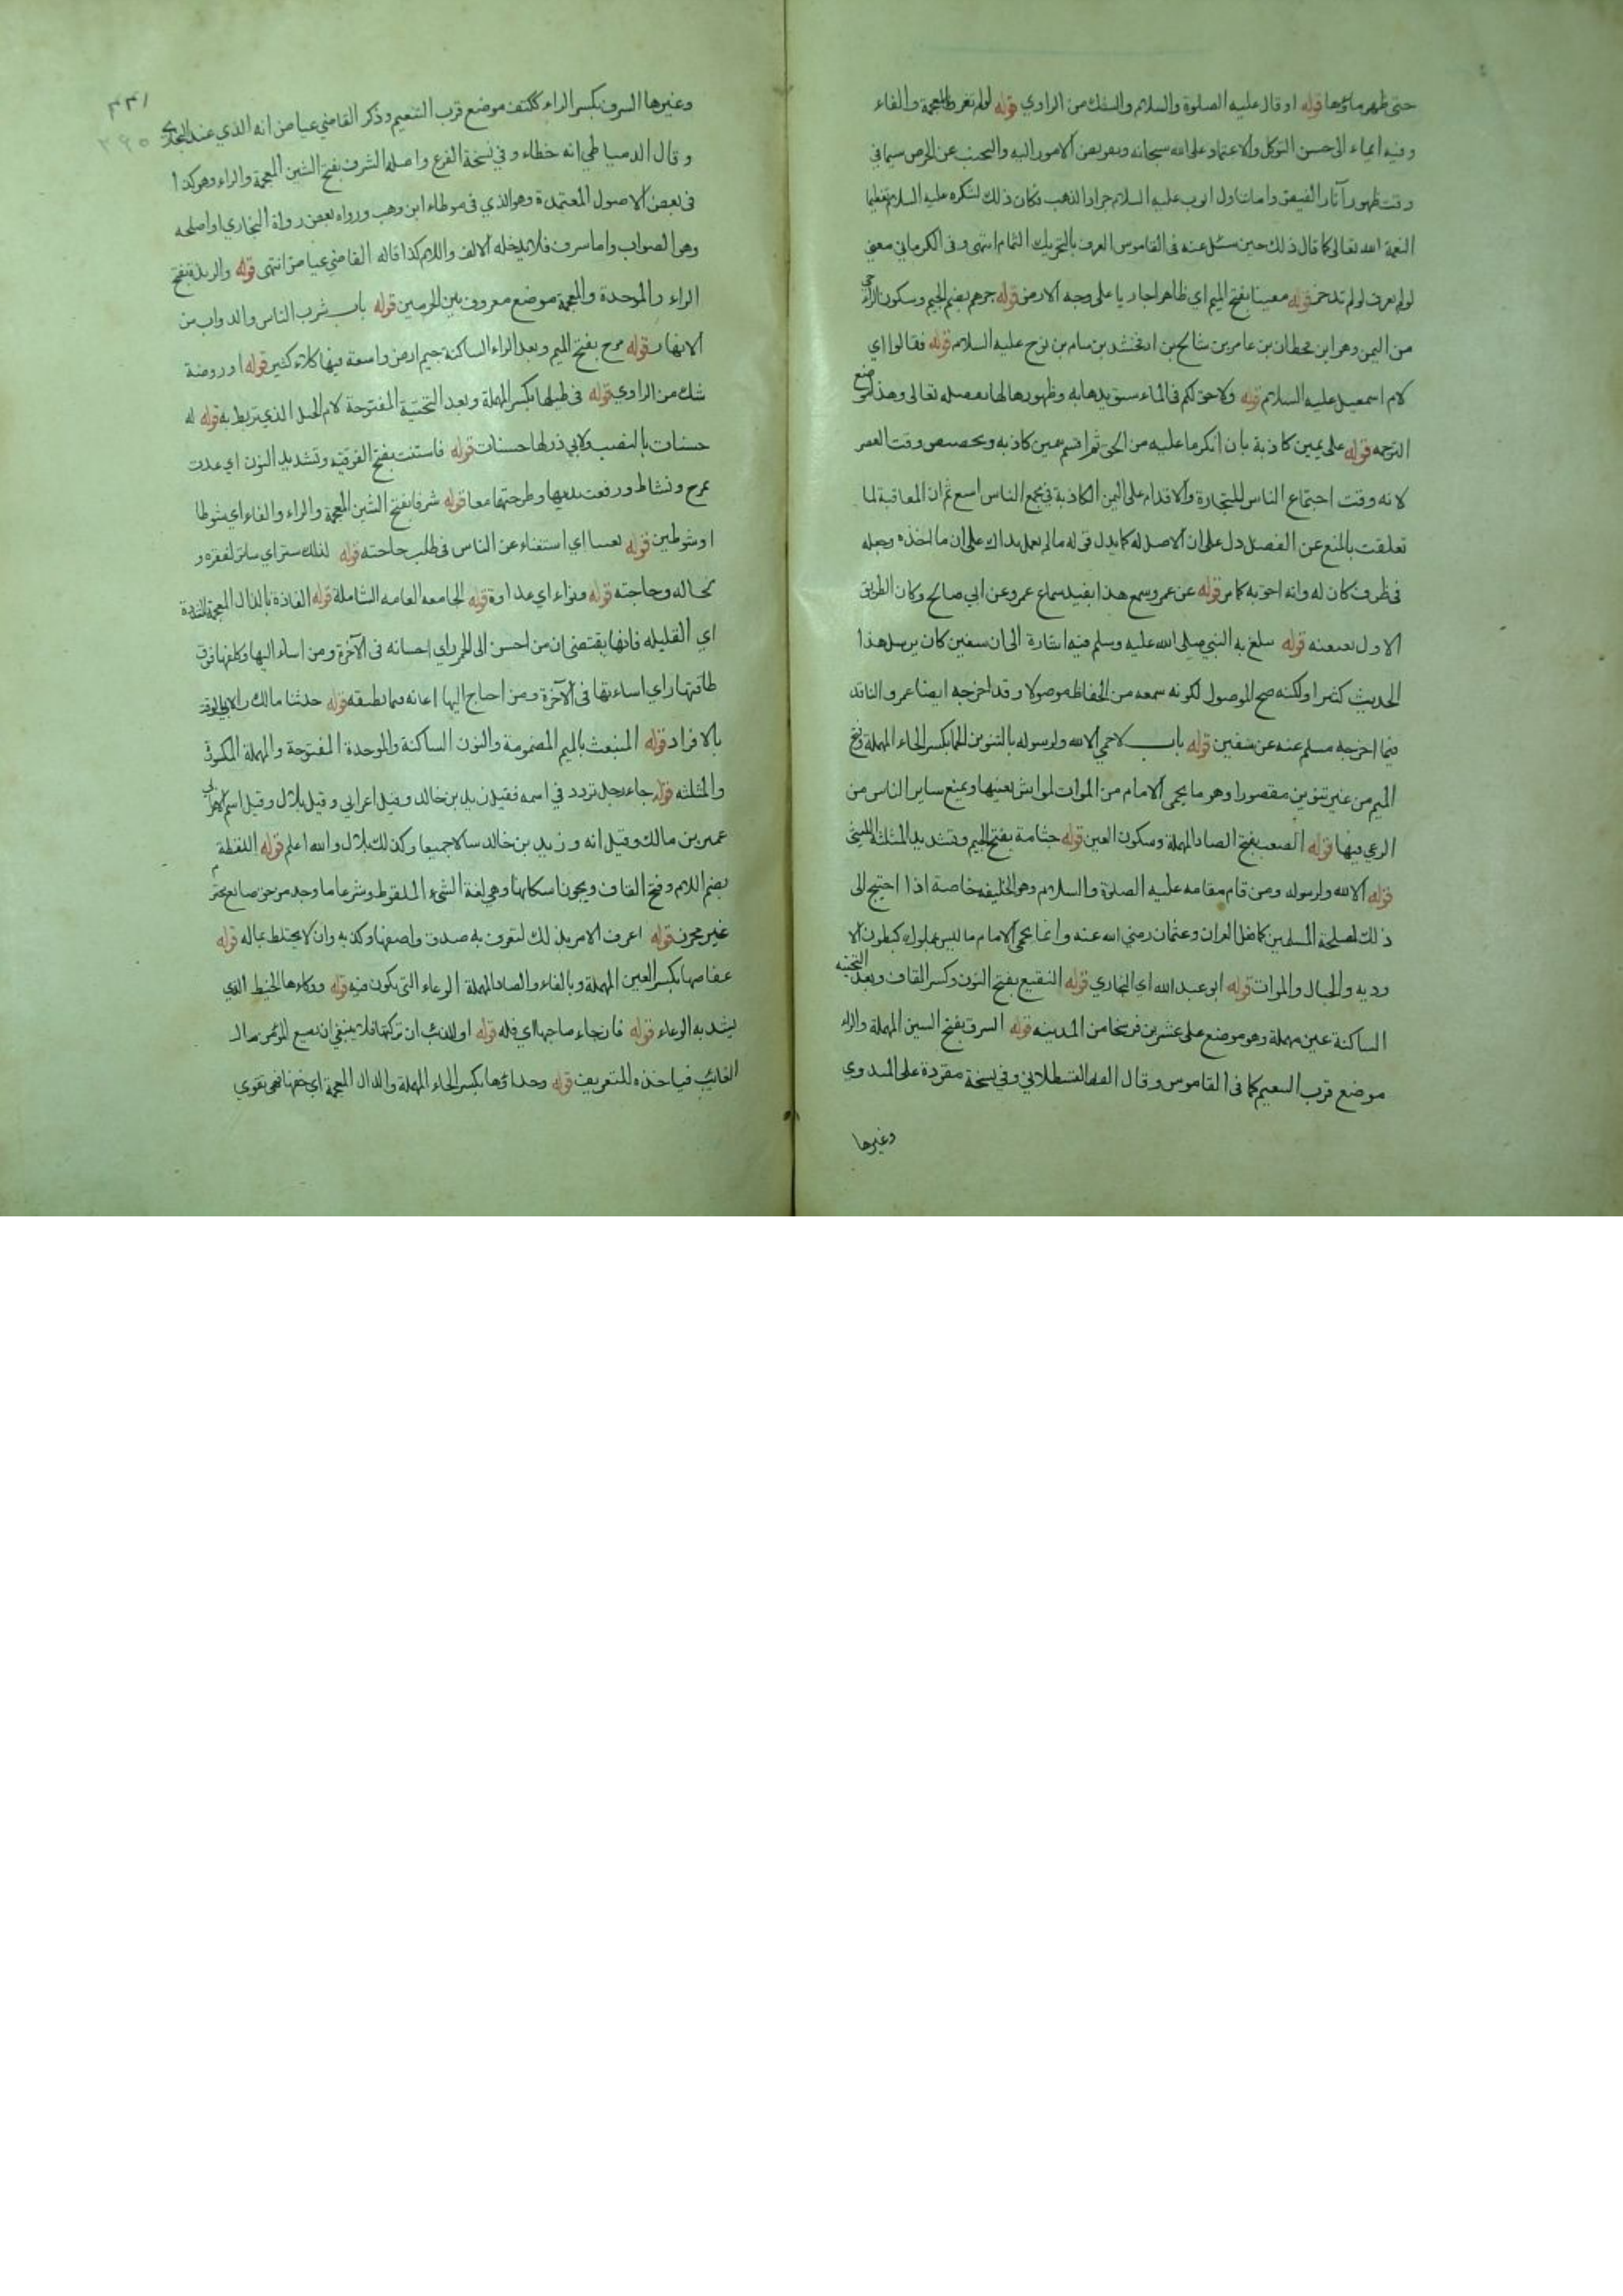 حتى ظهر ماؤها قوله او قال عليه الصلوة والسلام والشك من الراوي قوله لو لم تغرف بالمعجمة والفاء
وفيه ايماء الى حسن التوكل والاعتماد على الله سبحانه وتفويض الامور اليه والتجنب عن الحرص سيما في
وقت ظهور آثار الفيض واما تناول ايوب عليه السلام جراد الذهب فكان ذلك لشكره عليه السلام تعظيما
لنعمة الله تعالى كما قال ذلك حين سئل عنه في القاموس الغرف بالتحريك الثمام انتهى وفي الكرماني معنى
لو لم تغرف لو لم تدخر قوله معينا بفتح الميم اي ظاهرا جاريا على وجه الارض قوله جرهم بضم الجيم وسكون الراء حي
من اليمن وهو ابن قحطان بن عامر بن شالخ بن ارفخشد بن سام بن نوح عليه السلام قوله فقالوا اي
لام اسمعيل عليه السلام قوله ولا حق لكم في الماء سبق يدها به وظهوره لها بفضله تعالى وهذا موضع
الترجمه قوله على يمين كاذبة بان انكر ما عليه من الحق ثم اقسم يمين كاذبه وتخصيص وقت العصر
لانه وقت اجتماع الناس للتجارة والاقدام على اليمين الكاذبة في مجمع الناس اسع ثم ان المعاقبة لما
تعلقت بالمنع عن الفضل دل على ان الاصل له كما يدل قوله ما لم تعمل يداك على ان ما اخذه وجعله
في ظرف كان له وانه احق به كما مر قوله عن عمرو سمع هذا يفيد سماع عمرو عن ابي صالح وكان الطريق
الاول بعنعنه قوله يبلغ به النبي صلى الله عليه وسلم فيه اشارة الى ان سفين كان يرسل هذا
الحديث كثيرا ولكنه صح الموصول لكونه سمعه من الحفاظ موصولا وقد اخرجه ايضا عمرو الناقد
فيما اخرجه مسلم عنه عن سفين قوله باب لا حمى الا لله ولرسوله بالتنوين الحما بكسر الحاء المهملة وفتح
الميم من غير تنوين مقصورا وهو ما يحمى الامام من الموات لمواش بعينها ويمنع ساير الناس من
الرعي فيها قوله الصعب بفتح الصاد المهملة وسكون العين قوله جثامة بفتح الجيم وتشديد المثلثه الليثي
قوله الا لله ولرسوله ومن قام مقامه عليه الصلوة والسلام وهو الخليفه خاصة اذا احتيج الى
ذلك لمصلحة المسلمين كما فعل العمران وعثمان رضي الله عنه وانما يحمى الامام ما ليس بمملوك كبطون الا
وديه والجبال والموات قوله ابو عبد الله اي البخاري قوله النقيع بفتح النون وكسر القاف وبعد التحتيه
الساكنة عين مهملة وهو موضع على عشرين فرسخا من المدينه قوله السرف بفتح السين المهملة والراء
موضع قرب التنعيم كما في القاموس وقال القسطلاني وفي نسخة مقروءة على الميدوي
وغيرها
٣٣١
٢٩٥
وغيرها السرف بكسر الراء ككتف موضع قرب التنعيم وذكر القاضي عياض انه الذي عند البخاري
وقال الدمياطي انه خطاء وفي نسخة الفرع واصله الشرف بفتح الشين المعجمة والراء وهو كذا
في بعض الاصول المعتمدة وهو الذي في موطاء ابن وهب ورواه بعض رواة البخاري او اصلحه
وهو الصواب واما سرف فلا يدخله الالف واللام كذا قاله القاضي عياض انتهى قوله والربذة بفتح
الراء والموحدة والمعجمة موضع معروف بين الحرمين قوله باب شرب الناس والدواب من
الانهار قوله مرج بفتح الميم وبعد الراء الساكنة جيم ارض واسعة فيها كلاء كثير قوله او روضة
شك من الراوي قوله في طيلها بكسر المهملة وبعد التحتية المفتوحة لام الحبل الذي يربط به قوله له
حسنات بالنصب ولابي ذر لها حسنات قوله فاستنت بفتح الفوقيه وتشديد النون اي عدت
بمرح ونشاط ورفعت يديها وطرحتها معا قوله شرفا بفتح الشين المعجمة والراء والفاء اي شوطا
او شوطين قوله تغنيا اي استغناء عن الناس في طلب حاجته قوله لذلك ستر اي ساتر لفقره و
لحاله وحاجته قوله ونواء اي عداوة قوله الجامعه العامه الشاملة قوله الفاذة بالذال المعجمة المشددة
اي القليله فانها يقتضى ان من احسن الى الحمر راي احسانه في الآخرة ومن اساء اليها وكلفها فوق
طاقتها راي اساءتها في الآخرة ومن احتاج اليها اعانه فيما تطيقه قوله حدثنا مالك ولابي الوقت
بالافراد قوله المنبعث بالميم المضمومة والنون الساكنة والموحدة المفتوحة والمهملة المكسورة
والمثلثه قوله جاء رجل تردد في اسمه فقيل زيد بن خالد وقيل اعرابي وقيل بلال وقيل اسم الاعرابي
عمير بن مالك وقيل انه وزيد بن خالد سالا جميعا وكذلك بلال والله اعلم قوله اللقطة
بضم اللام وفتح القاف ويجوز اسكانها وهي لغة الشيء الملقوط وشرعا ما وجد من حق ضايع محترم
غير محرز قوله اعرف الامر بذلك لتعرف به صدق واصفها وكذبه وان لا يختلط بماله قوله
عفاصها بكسر العين المهملة وبالفاء والصاد المهملة الوعاء التي يكون فيه قوله ووكاءها الخيط الذي
يشد به الوعاء قوله فان جاء صاحبها اي فله قوله او للذئب ان تركتها فلا ينبغي ان يضيع المؤمن مال
الغائب فياخذه للتعريف قوله وحذاؤها بكسر الحاء المهملة والذال المعجمة اي خفها فهي تقوي